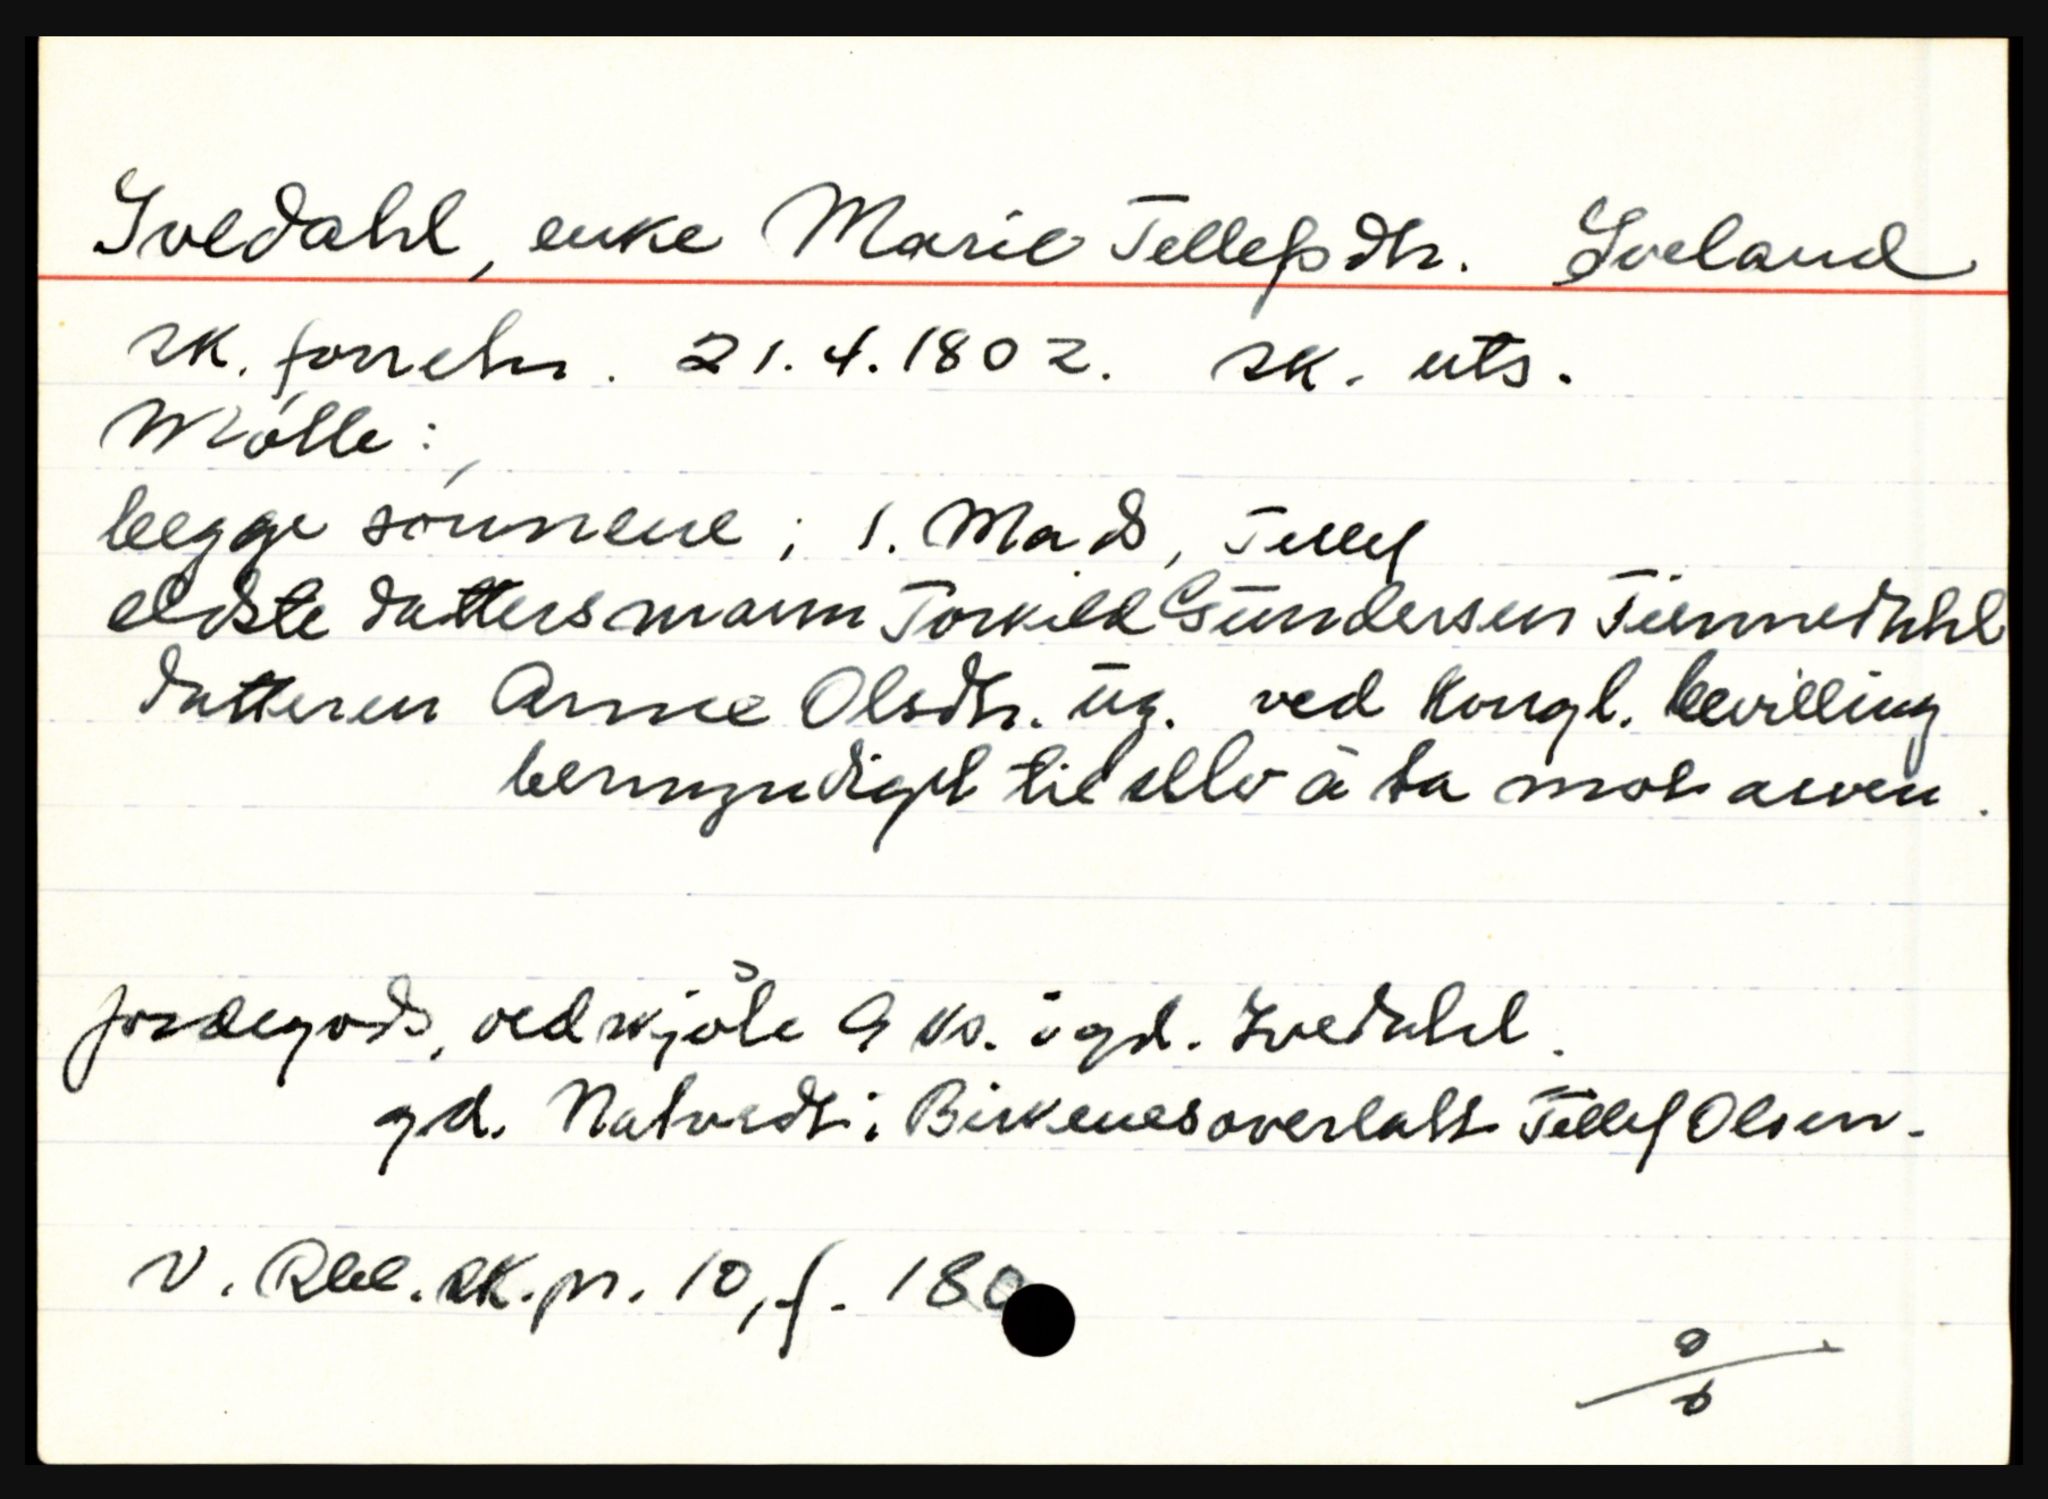 Ivedahl, enke Marie Tellefsdtr. Iveland
sk. forretn. 21.4.1802. sk. uts.
Møtte:
begge sønnene; s. Mads, Tellef
eldste datters mann Torkild Gundersen Tiennedahl
datteren Anne Olsdtr. ug. ved kongl. bevilling
bemyndiget til selv å ta mot arven.
jordegods, vedkjøle 9 ks. i gd. Ivedahl.
gd. Natvedt i Birkenes overlatt Tellef Olsen.
V. Rbl. sk.pr. 10, f. 180
a
b